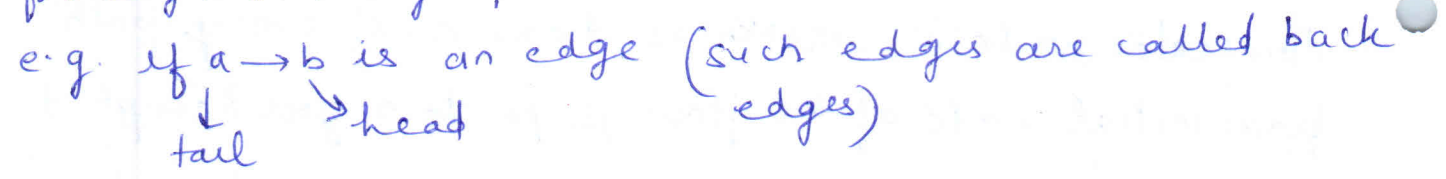 e.g. if a → b is an edge (such edges are called back
↓ ↘ head edges)
tail